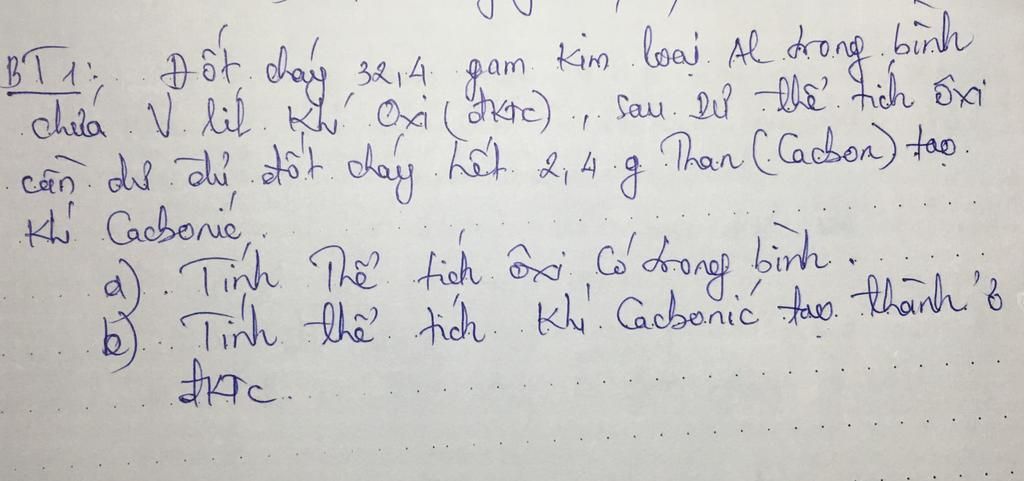 BT1: Đốt cháy 32,4 gam kim loại Al trong bình
chứa V lít khí Oxi (đKTC), sau PƯ thể tích ôxi
còn dư đủ đốt cháy hết 2,4 g Than (Cacbon) tạo
khí Cacbonic.
a) Tính Thể tích ôxi có trong bình.
b) Tính thể tích khí Cacbonic tạo thành ở
đKTC.